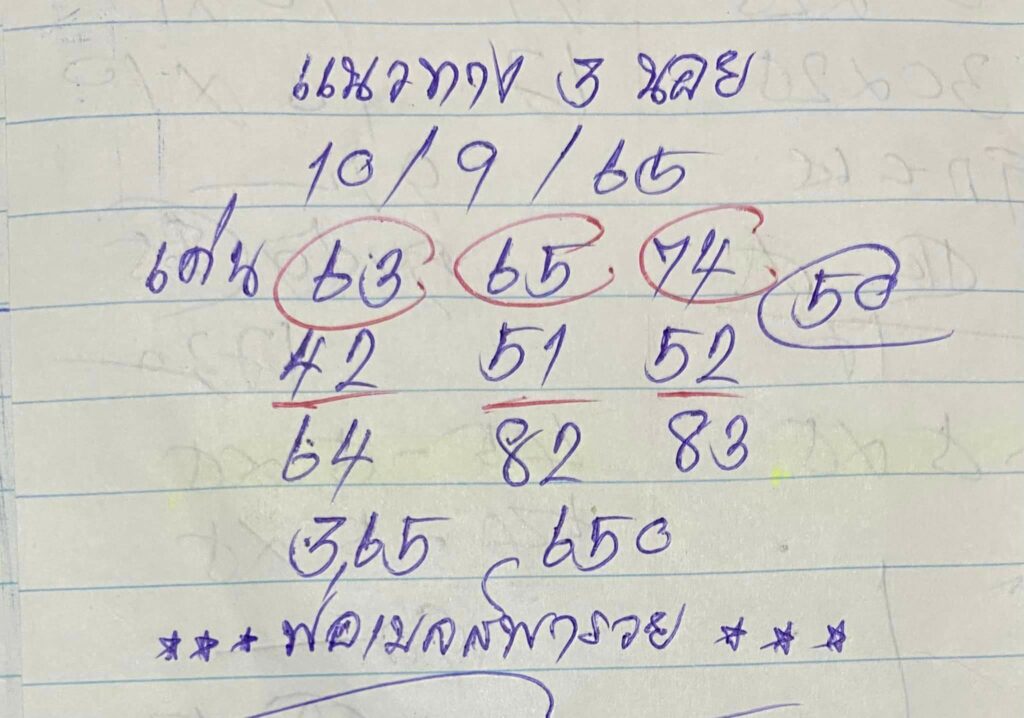 แนวทาง 3 นอย
10/9/65
เด่น 63 65 74 50
42 51 52
64 82 83
3,65 650
*** พ่อเมจสพารวย ***